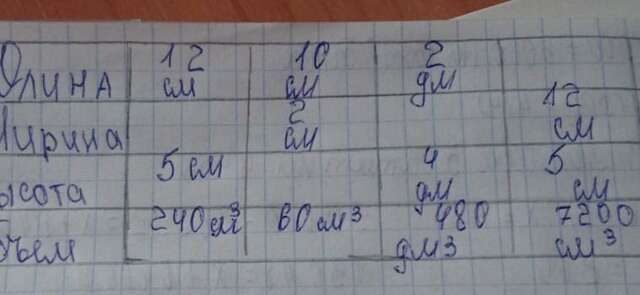 Длина 12 см 10 см 2 дм
Ширина 2 см 12 см
Высота 5 см 4 дм 5 см
Объем 240 см³ 60 см³ 480 дм3 7200 см³